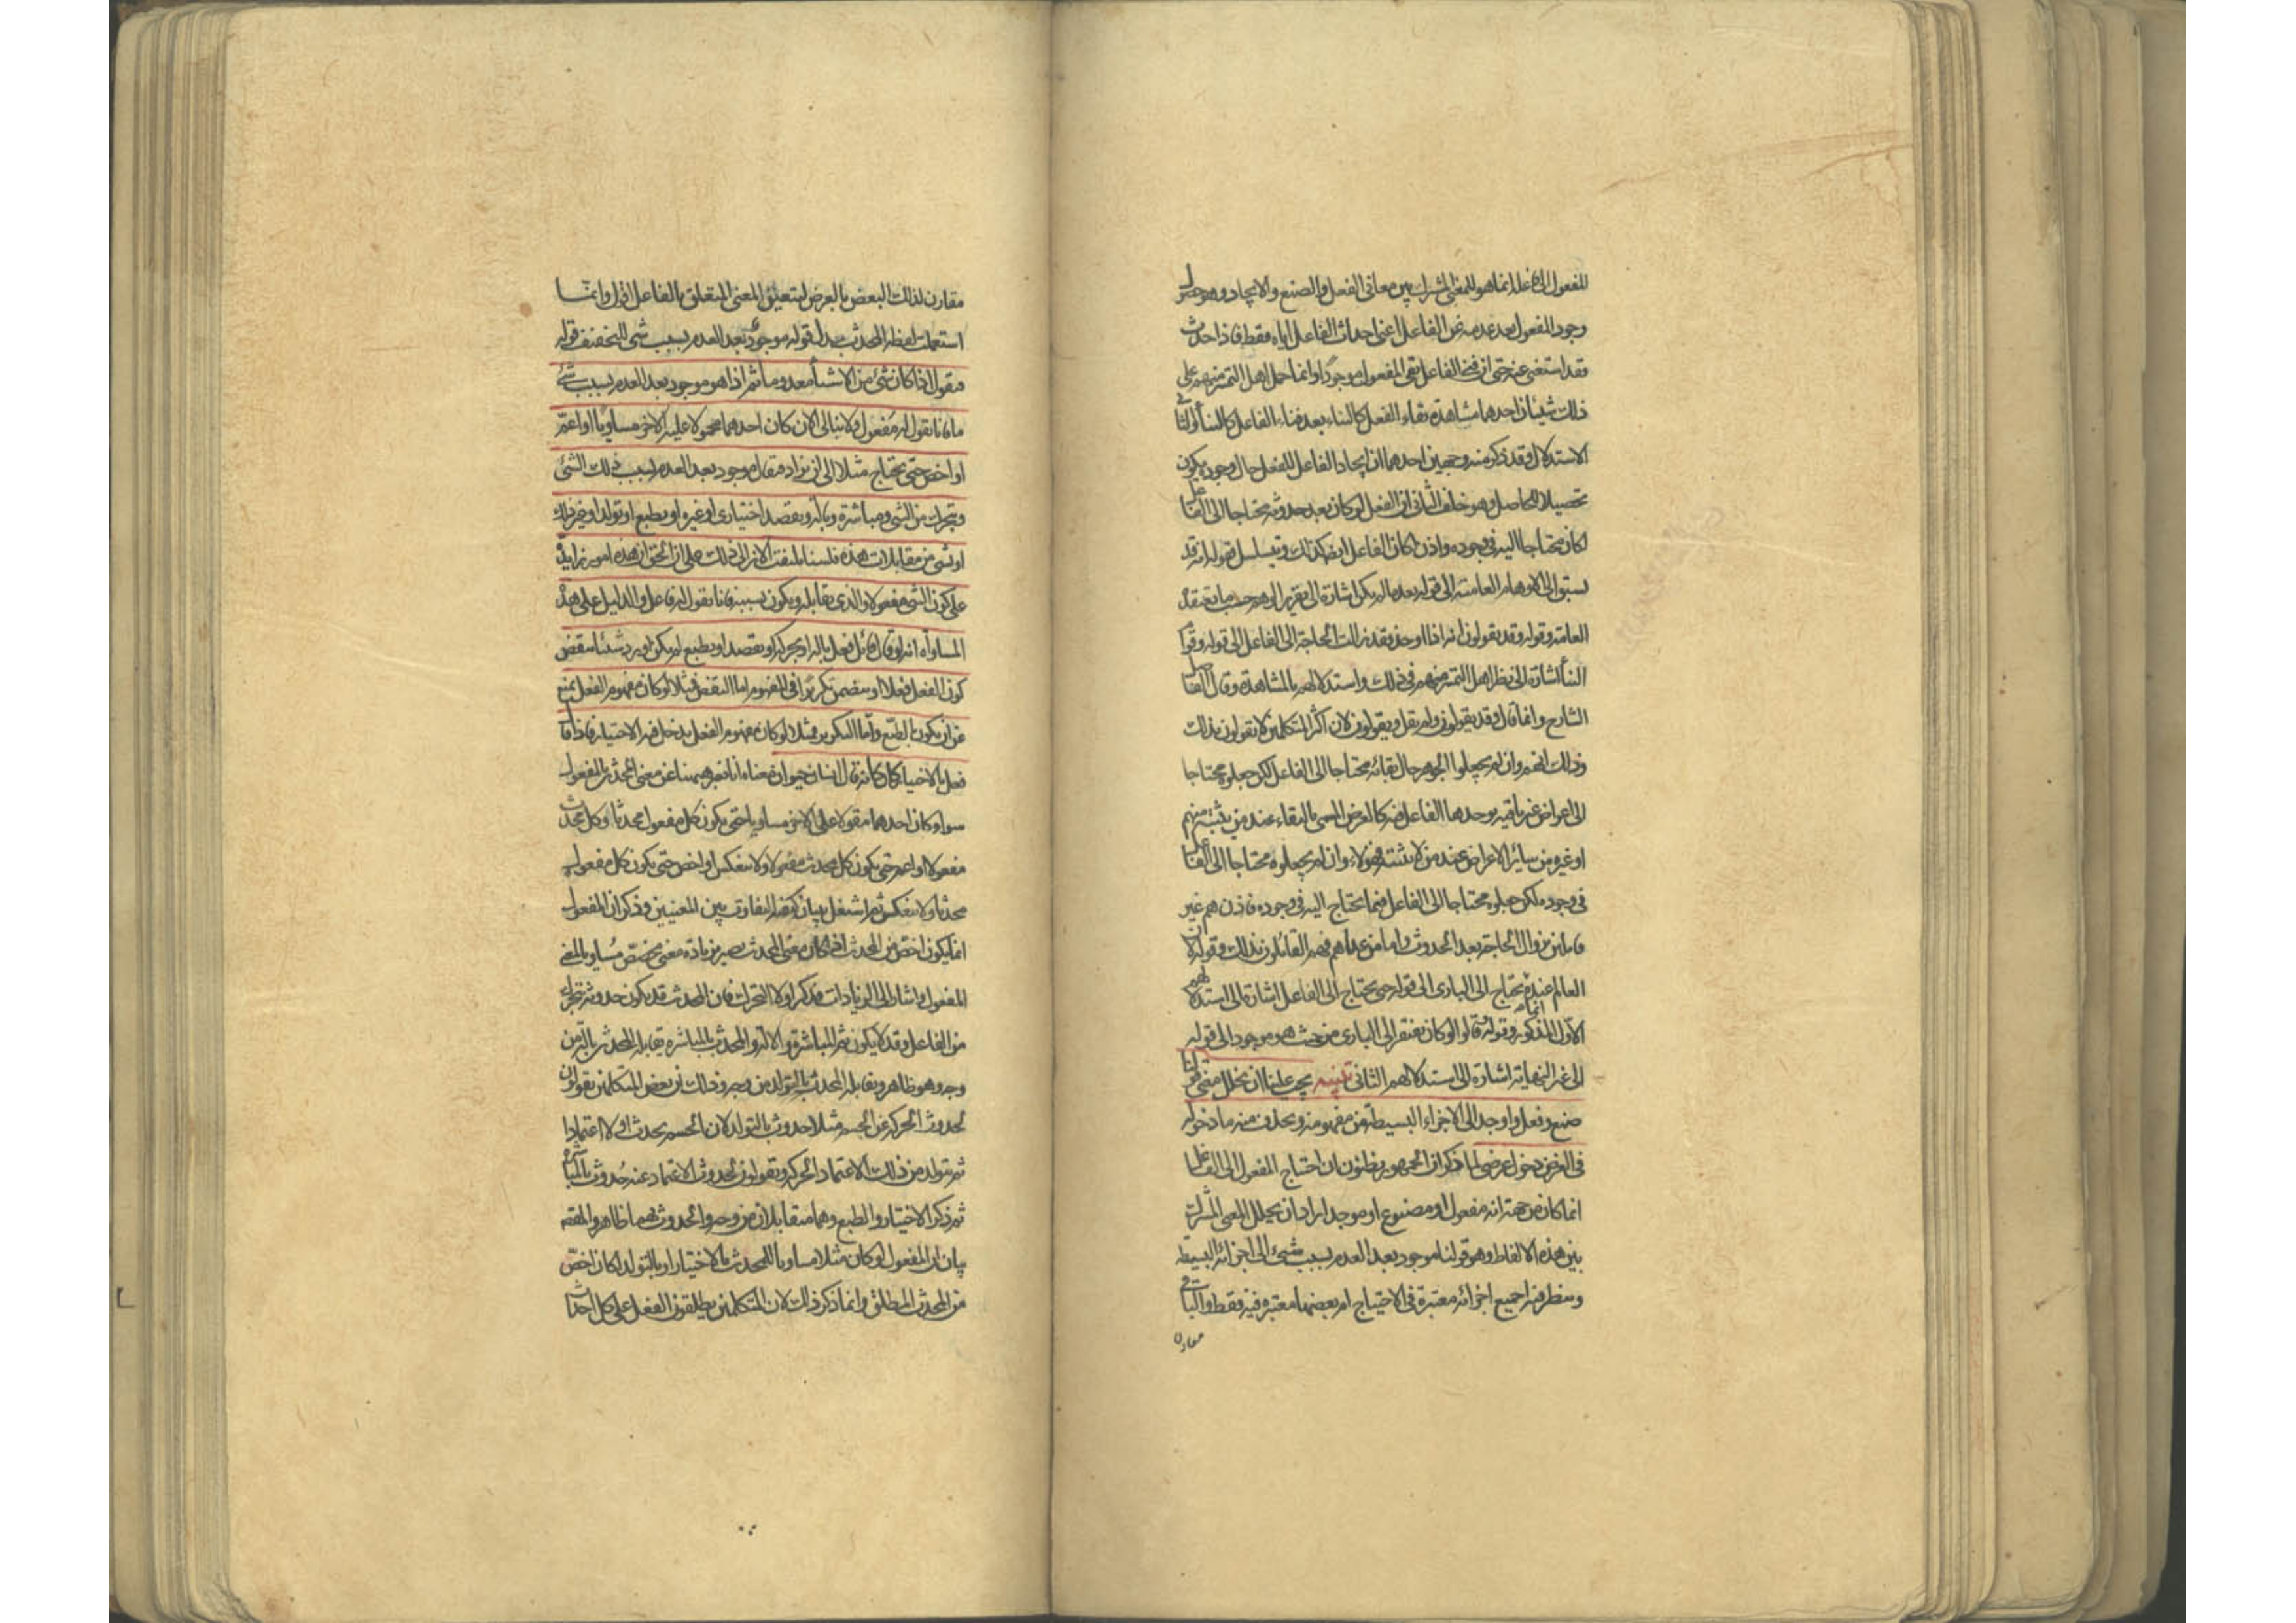 للمفعول الى فاعله انما هو للمعنى المشترك بين معانى الفعل والصنع والايجاد وهو حصول
وجود المفعول بعد عدمه عن الفاعل اعنى احداث الفاعل اياه فقط فاذا حدث
فقد استغنى عنه حتى ان فنى الفاعل بقى المفعول موجودًا وانما حمل اهل التميز منهم على
ذلك شيئان احدهما مشاهدة بقاء الفعل كالبناء بعد فناء الفاعل كالبناء والثانى
الاستدلال وقد ذكر منه وجهين احدهما ان ايجاد الفاعل للفعل حال وجوده يكون
تحصيلا للحاصل وهو خلف الثانى ان الفعل لو كان بعد حدوثه محتاجا الى الفاعل
لكان محتاجا اليه فى وجوده واذن لكان الفاعل ايضا كذلك ويتسلسل فقوله انه قد
يسبق الى الاوهام العامية الى قوله بعد ما لم يكن اشارة الى تقرير الوهم حسب ما يعتقده
العامة وقوله وقد يقولون انه اذا اوجد فقد زالت الحاجة الى الفاعل الى قوله وقوام
البناء اشارة الى نظر اهل التميز منهم فى ذلك واستدلالهم بالمشاهدة وقال الفاضل
الشارح وانما قال وقد يقولون ولم يقل ويقولون لان اكثر المتكلمين لا يقولون بذلك
وذلك انهم وان لم يجعلوا الجوهر حال بقائه محتاجا الى الفاعل لكن جعلوه محتاجا
الى اعراض غير باقية يوجدها الفاعل فيه كالعرض المسمى بالبقاء عند من يثبته منهم
او غيره من سائر الاعراض عند من لا يثبته فهولاء وان لم يجعلوه محتاجا الى الفاعل
فى وجوده لكن جعلوه محتاجا الى الفاعل فيما يحتاج اليه فى وجوده فاذن هم غير
قائلين بزوال الحاجة بعد الحدوث واما من عداهم فهم القائلون بذلك وقوله لان
العالم عنده يحتاج الى البارى الى قوله حتى يحتاج الى الفاعل اشارة الى استدلالهم
الاول المذكور وقوله وقالوا لو كان يفتقر الى البارى من حيث هو موجود الى قوله
الى غير النهاية اشارة الى استدلالهم الثانى تنبيه يجب علينا ان نحلل معنى قولنا
صنع وفعل واوجد الى الاجزاء البسيطة من مفهومه ونحذف منه ما دخوله
فى الغرض دخول عرضى لما ذكر ان الجمهور يظنون ان احتياج المفعول الى الفاعل
انما كان من جهة انه مفعول او مصنوع او موجد اراد ان يحلل المعنى المشترك
بين هذه الالفاظ وهو قولنا موجود بعد العدم بسبب شىء الى اجزائه البسيطة
وينظر فيه اجميع اجزائه معتبرة فى الاحتياج ام بعضها معتبر فيه فقط والباقى
مقارن
مقارن لذلك البعض بالعرض ليتعين المعنى المتعلق بالفاعل اقول وانما
استعملت لفظة المحدث بدل قوله موجود بعد العدم بسبب شىء للتخفيف قوله
فنقول اذا كان شىء من الاشياء معدوما ثم اذا هو موجود بعد العدم بسبب شىء
ما فانا نقول له مفعول ولا نبالى الان كان احدهما محمولا عليه الاخر مساويا او اعم
او اخص حتى يحتاج مثلا الى ان يزاد فيقال موجود بعد العدم بسبب ذلك الشىء
وبتحرك من الشىء ومباشرة وبالة وبقصد اختيارى او غيره او بطبع او تولد او غير ذلك
او شىء من مقابلات هذه فلسنا نلتفت الان الى ذلك على ان الحق ان هذه امور زايدة
على كون الشىء مفعولا والذى يقابله ويكون بسببه فانا نقول له فاعل والدليل على هذه
المساواة انه لو قال قائل فعل بالة او بحركة او بقصد او بطبع لم يكن اورد شيئا ينقض
كون الفعل فعلا او يتضمن تكريرا فى المفهوم اما النقض فمثلا لو كان مفهوم الفعل يمنع
عن ان يكون بالطبع واما التكرير فمثلا لو كان مفهوم الفعل يدخل فيه الاختيار فاذا قال
فعل بالاختيار كان كانه قال انسان حيوان معناه انا نعبر ههنا عن معنى المحدث بالمفعول
سواء كان احدهما مقولا على الاخر مساويا حتى يكون كل مفعول محدثا وكل محدث
مفعولا او اعم حتى يكون كل محدث مفعولا ولا ينعكس او اخص حتى يكون كل مفعول
محدثا ولا ينعكس ثم اشتغل ببيان كيفية التفاوت بين المعنيين وذكر ان المفعول
انما يكون اخص من المحدث اذا كان معنى المحدث يصير بزيادة معنى مخصص مساويا لمعنى
المفعول واشار الى الزيادات فذكر اولا التحرك فان المحدث قد يكون حدوثه بتحرك
من الفاعل وقد لا يكون ثم المباشرة والالة والمحدث بالمباشرة يقابل المحدث بالة من
وجه وهو ظاهر ويقابله المحدث بالتولد من وجه وذلك ان بعض المتكلمين يقولون
لحدوث الحركة عن الجسم مثلا حدوث بالتولد لان الجسم يحدث اولا اعتمادا
ثم يتولد من ذلك الاعتماد الحركة ويقولون لحدوث الاعتماد عنه حدوث بالمباشرة
ثم ذكر الاختيار والطبع وهما متقابلان من وجه والحدوث بهما ظاهر والمقصود
بيان ان المفعول لو كان مثلا مساويا للمحدث بالاختيار او بالتولد لكان اخص
من المحدث المطلق وانما ذكر ذلك لان المتكلمين يطلقون الفعل على كل احداث